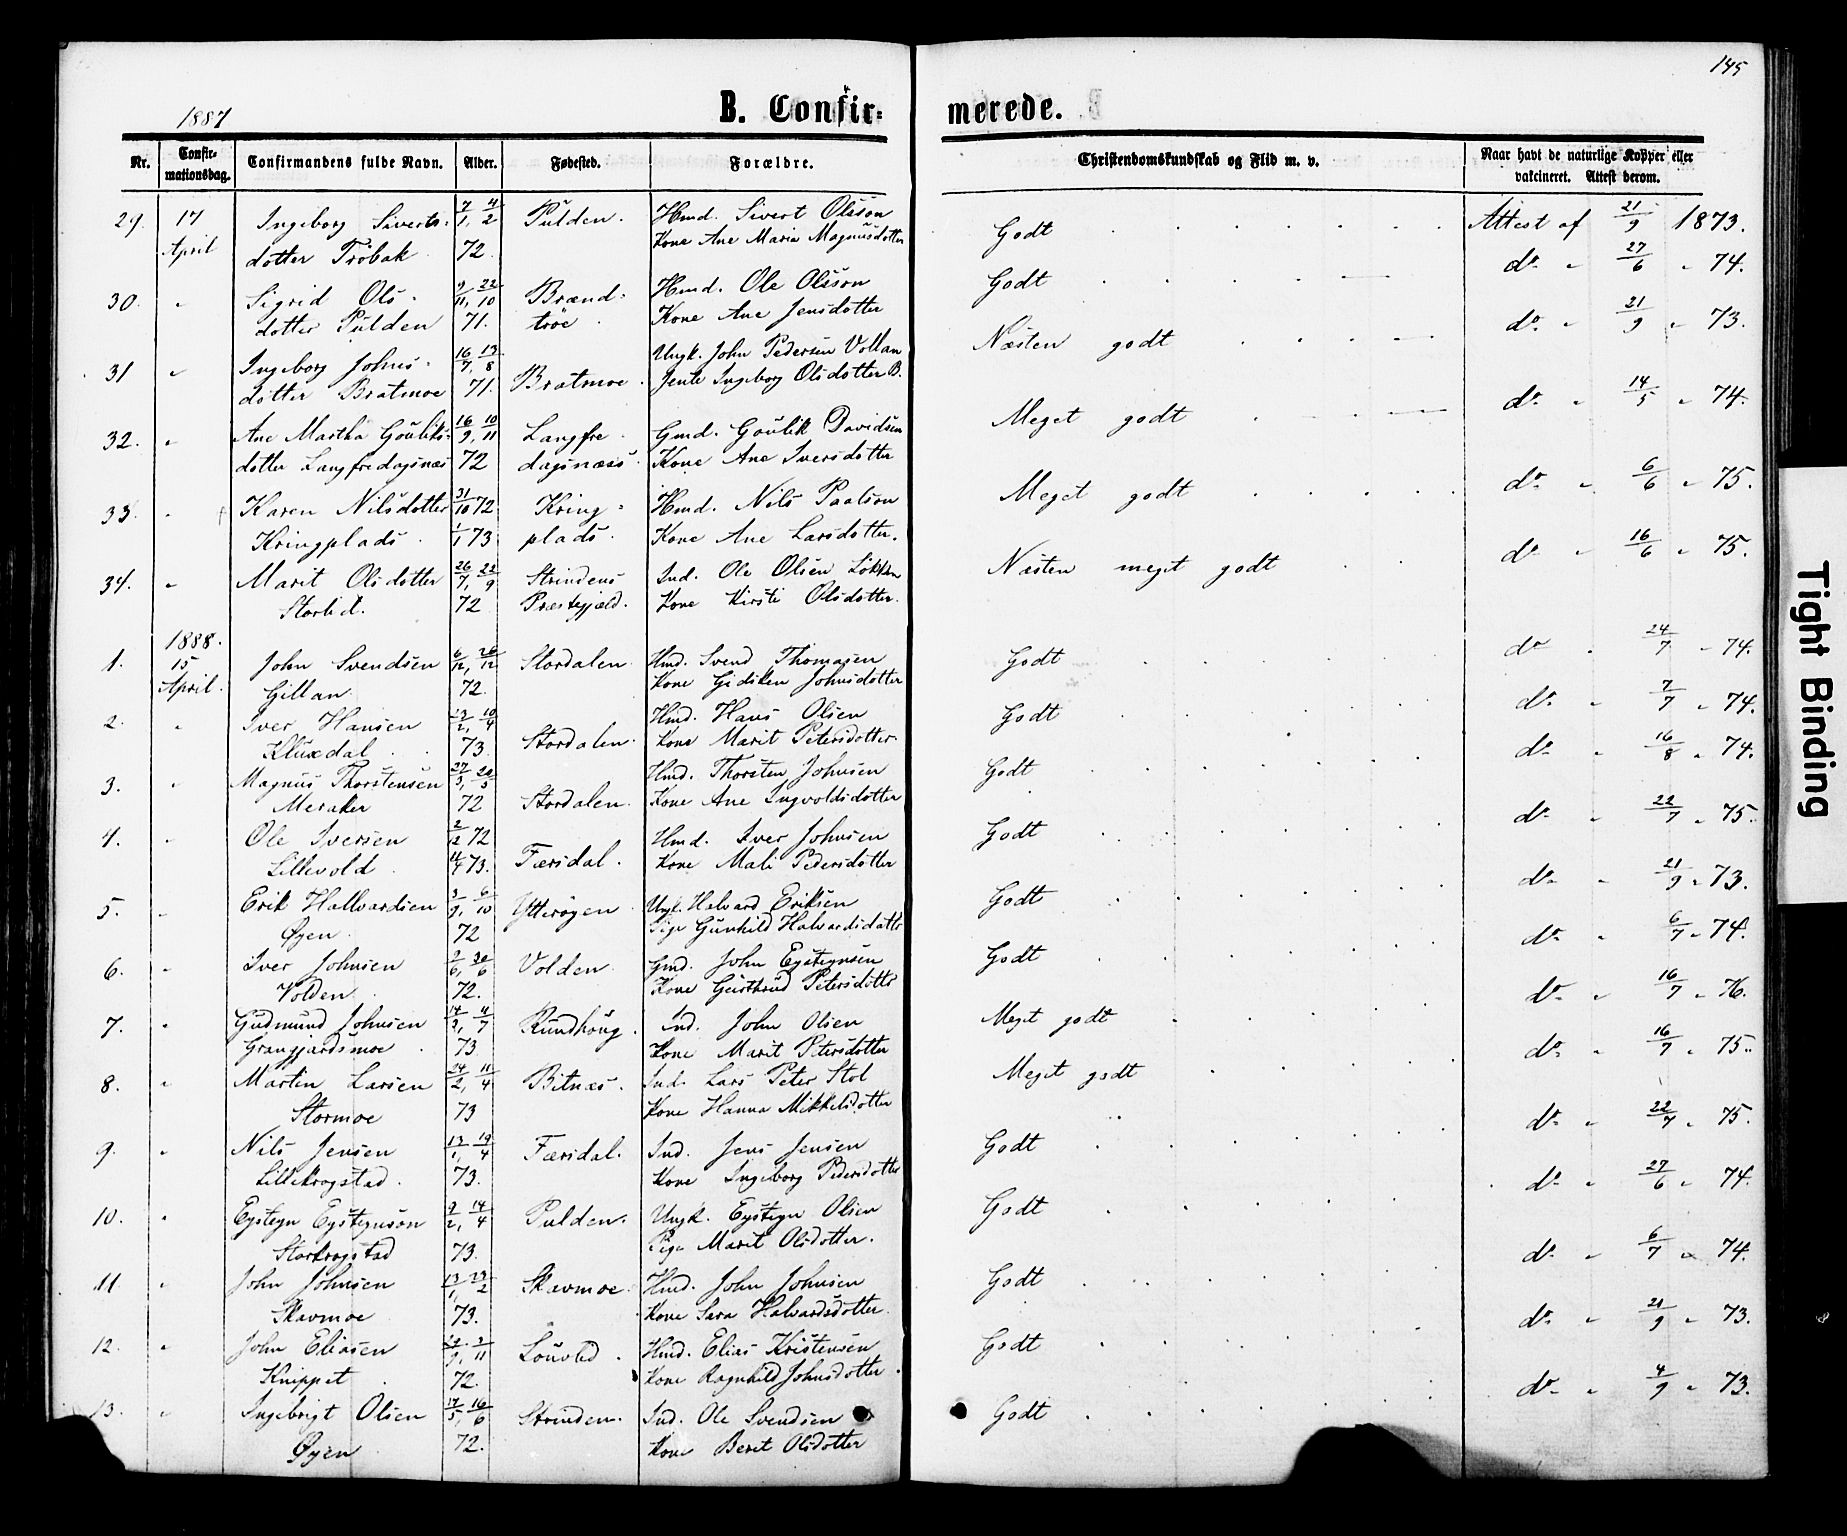 145
1887
B. Confir=
merede.
Nr. Confir=mationsdag. Confirmandens fulde Navn. Alder. Fødested. Forældre. Christendomskundskab og Flid m. v. Naar havt de naturlige Kopper eller vakcineret. Attest derom.
29. 17 Ingeborg Siverts- 7/1, 4/2 Pulden. Hmd. Sivert Olsson Godt Attest af 21/9 1873.
April dotter Tröbak 72. Kone Ane Maria Magnusdotter
30. " Sigrid Ols- 9/11, 22/10 Brænd- Hmd. Ole Olsson Godt do " 27/6 " 74.
dotter Pulden 71. tröe. Kone Ane Jensdotter
31 " Ingeborg Johns- 16/7, 13/8 Bratmoe. Ungk. John Pedersen Vollan Næsten godt do " 21/9 " 73.
dotter Bratmoe 71. Jente Ingeborg Olsdotter B.
32. " Ane Martha Gouliks- 16/9, 10/11 Langfre- Gmd. Goulik Davidsen Meget godt do " 14/5 " 74.
dotter Langfredagsnæs 72 dagsnæss. Kone Ane Iversdotter
33. " Karen Nilsdotter 31/10 72 Kring- Hmd. Nils Paalson Meget godt do " 6/6 " 75.
Kringplads. 1/1 73 plads. Kone Ane Larsdotter.
34. " Marit Olsdotter 26/7, 22/9 Strindens Ind. Ole Olsen Lökken Næsten meget godt do " 16/6 " 75.
Storlid. 72 Præstegjæld. Kone Kirsti Olsdotter.
1888.
1. 15 John Svendsen 6/12, 26/12 Stordalen Hmd. Svend Thomasen Godt do " 24/7 " 74.
April. Gillan 72. Kone Gidsken Johnsdotter
2. " Iver Hansen 13/2, 10/4 Stordalen. Hmd. Hans Olsen Godt do " 7/7 " 74.
Kluxdal 73. Kone Marit Petersdotter
3. " Magnus Thorstensen 27/3, 20/5 Stordalen. Hmd. Thorsten Johnsen Godt do " 16/8 " 74.
Meraker 72 Kone Ane Ingvoldsdotter
4. " Ole Iversen 2/12 72 Færsdal. Hmd. Iver Johnsen Godt do " 22/7 " 75.
Lillevold 4/4 73. Kone Mali Pedersdotter
5. " Erik Hallvardsen 3/9, 6/10 Ytterøyen Ungk. Halvard Eriksen Godt do " 21/9 " 73.
Øyen. 72 Pige Gunhild Halvardsdotter
6. " Iver Johnsen 2/6, 30/6 Volden Gmd. John Eysteynsen Godt do " 6/7 " 74.
Volden 72. Kone Gurthrud Petersdotter
7. " Gudmund Johnsen 14/3, 4/7 Rundhoug. Ind. John Olsen Meget godt do " 16/7 " 76.
Grangjardsmoe 73 Kone Marit Petersdotter
8. " Martin Larsen 24/2, 11/4 Bitnæs. Ind. Lars Peter Stol Meget godt do " 16/7 " 75.
Stormoe 73 Kone Hanna Mikkelsdotter
9. " Nils Jensen 13/1, 19/4 Færsdal. Ind. Jens Jensen Godt do " 22/7 " 75.
Lillekrogstad. 73. Kone Ingeborg Pedersdotter
10. " Eysteyn Eysteynson 9/2, 14/4 Pulden. Ungk. Eysteyn Olsen Godt do " 27/6 " 74.
Storkrogstad 73. Pige Marit Olsdotter.
11 " John Johnsen 13/1, 23/2 Skavmoe Hmd. John Johnsen Godt do " 6/7 " 74.
Skavmoe 73. Kone Sara Halvardsdotter.
12. " John Eliasen 9, 3/11 Louvlid. Hmd. Elias Kristensen Godt do " 21/9 " 73.
Knippet 72. Kone Ragnhild Johnsdotter.
13. " Ingebrigt Olsen 17/5, 16/6 Strinden. Ind. Ole Svendsen Godt do " 4/9 " 73.
Øyen 72. Kone Beret Olsdotter
Tight Binding